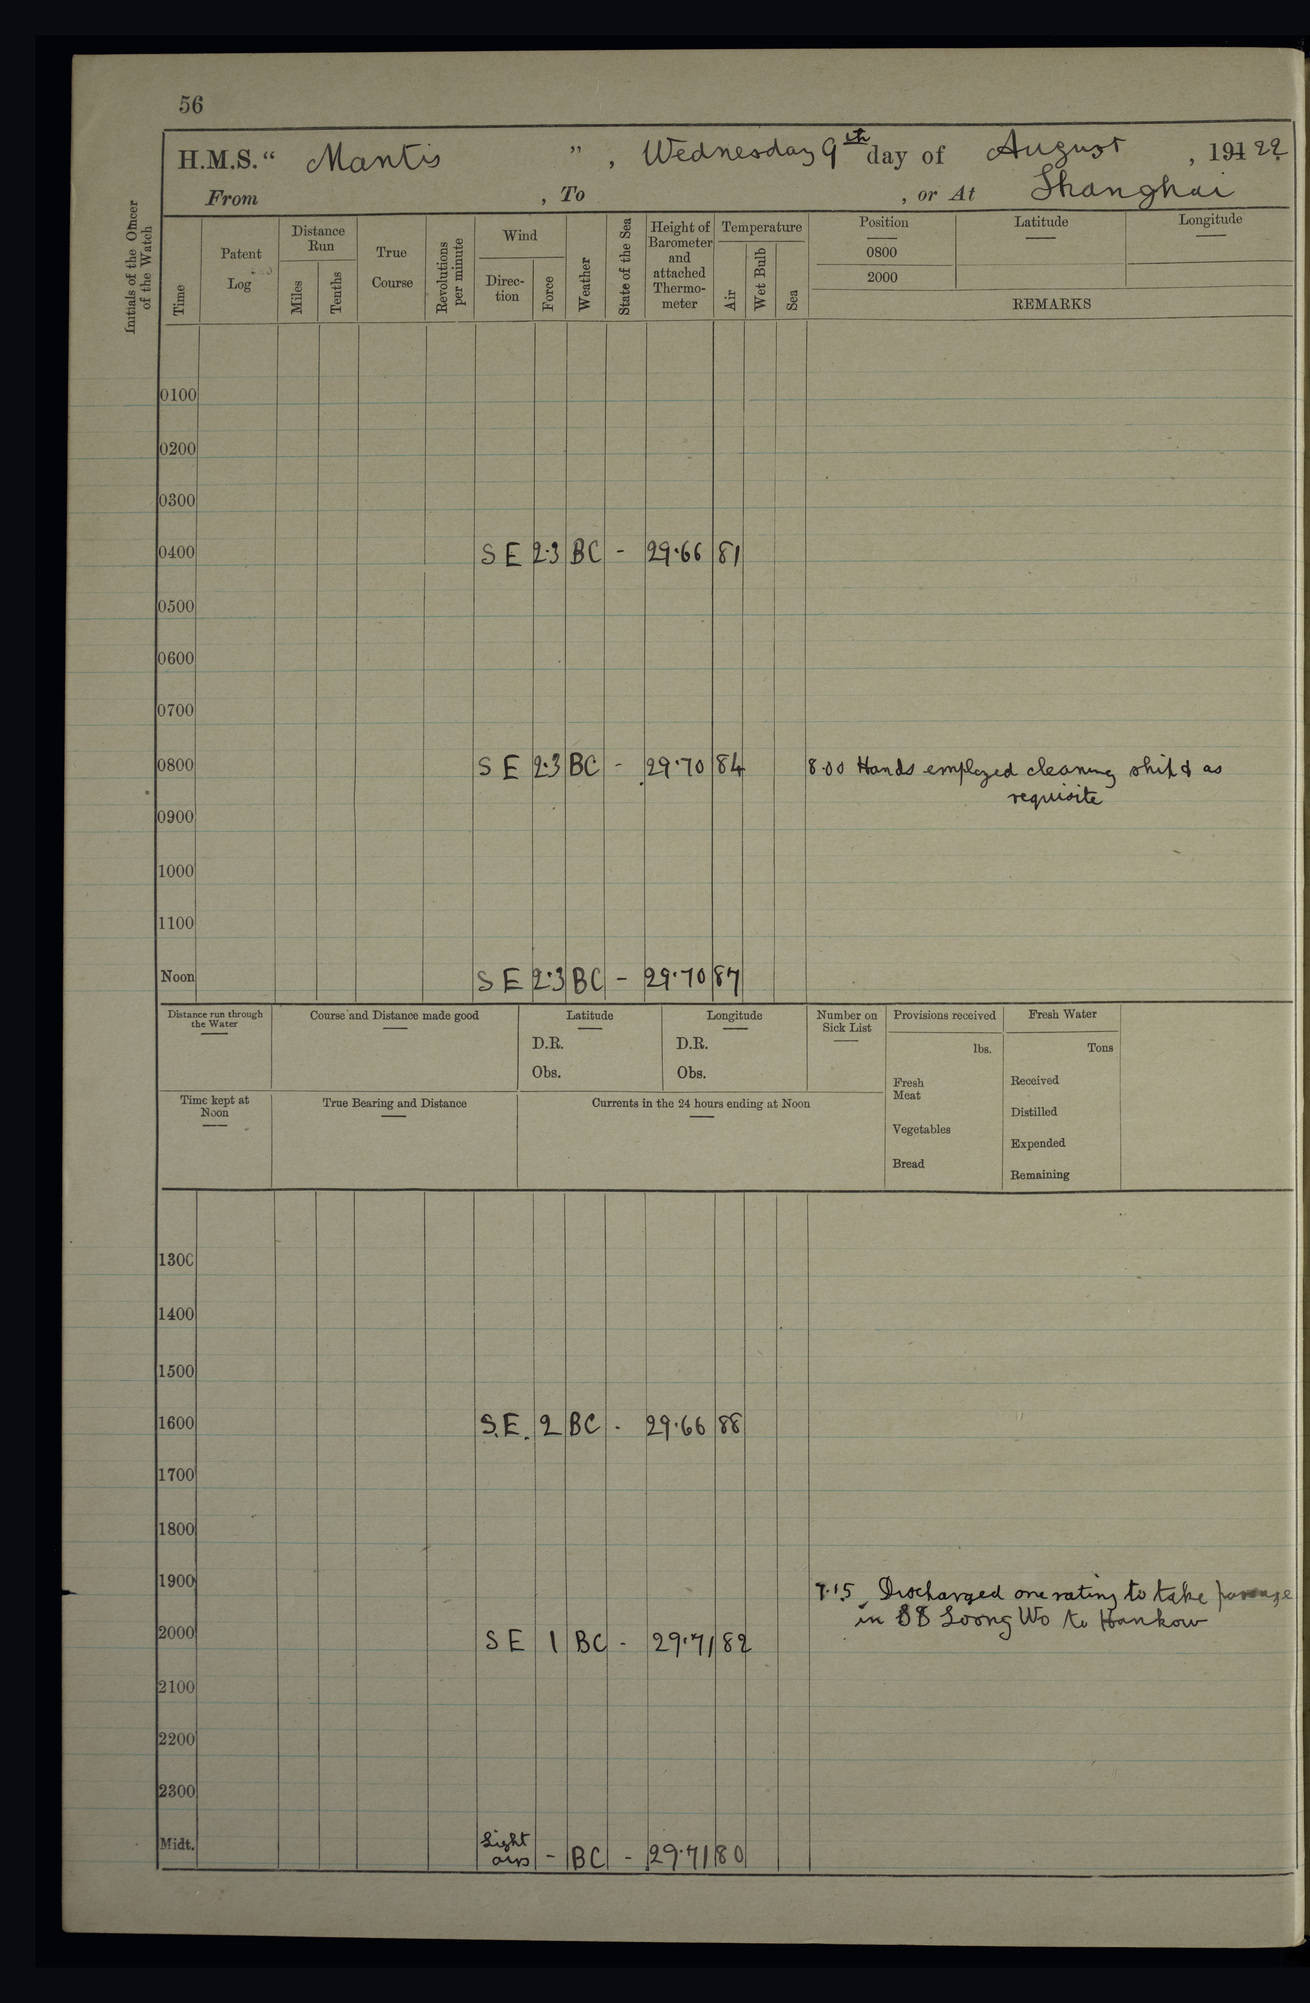 56
H.M.S. “ Mantis ”, Wednesday 9th day of August, 191 22
From , To , or At Shanghai
Initials of the Officer of the Watch
Time
Patent Log
Distance Run
Miles
Tenths
True Course
Revolutions per minute
Wind
Direc-tion
Force
Weather
State of the Sea
Height of Barometer and attached Thermo-meter
Temperature
Air
Wet Bulb
Sea
Position
0800
2000
Latitude
Longitude
REMARKS
0100
0200
0300
0400 S E 2.3 BC - 29.66 81
0500
0600
0700
0800 S E 2.3 BC - 29.70 84 8.00 Hands employed cleaning ship & as
requisite
0900
1000
1100
Noon S E 2.3 BC - 29.70 87
Distance run through the Water
Course and Distance made good
Latitude
D.R.
Obs.
Longitude
D.R.
Obs.
Number on Sick List
Provisions received
lbs.
Fresh Meat
Vegetables
Bread
Fresh Water
Tons
Received
Distilled
Expended
Remaining
Time kept at Noon
True Bearing and Distance
Currents in the 24 hours ending at Noon
1300
1400
1500
1600 S.E. 2 BC - 29.66 88
1700
1800
1900 7.15 Discharged one rating to take passage
in SS Loong Wo to Hankow
2000 S E 1 BC - 29.71 82
2100
2200
2300
Midt. Light airs - BC - 29.71 80